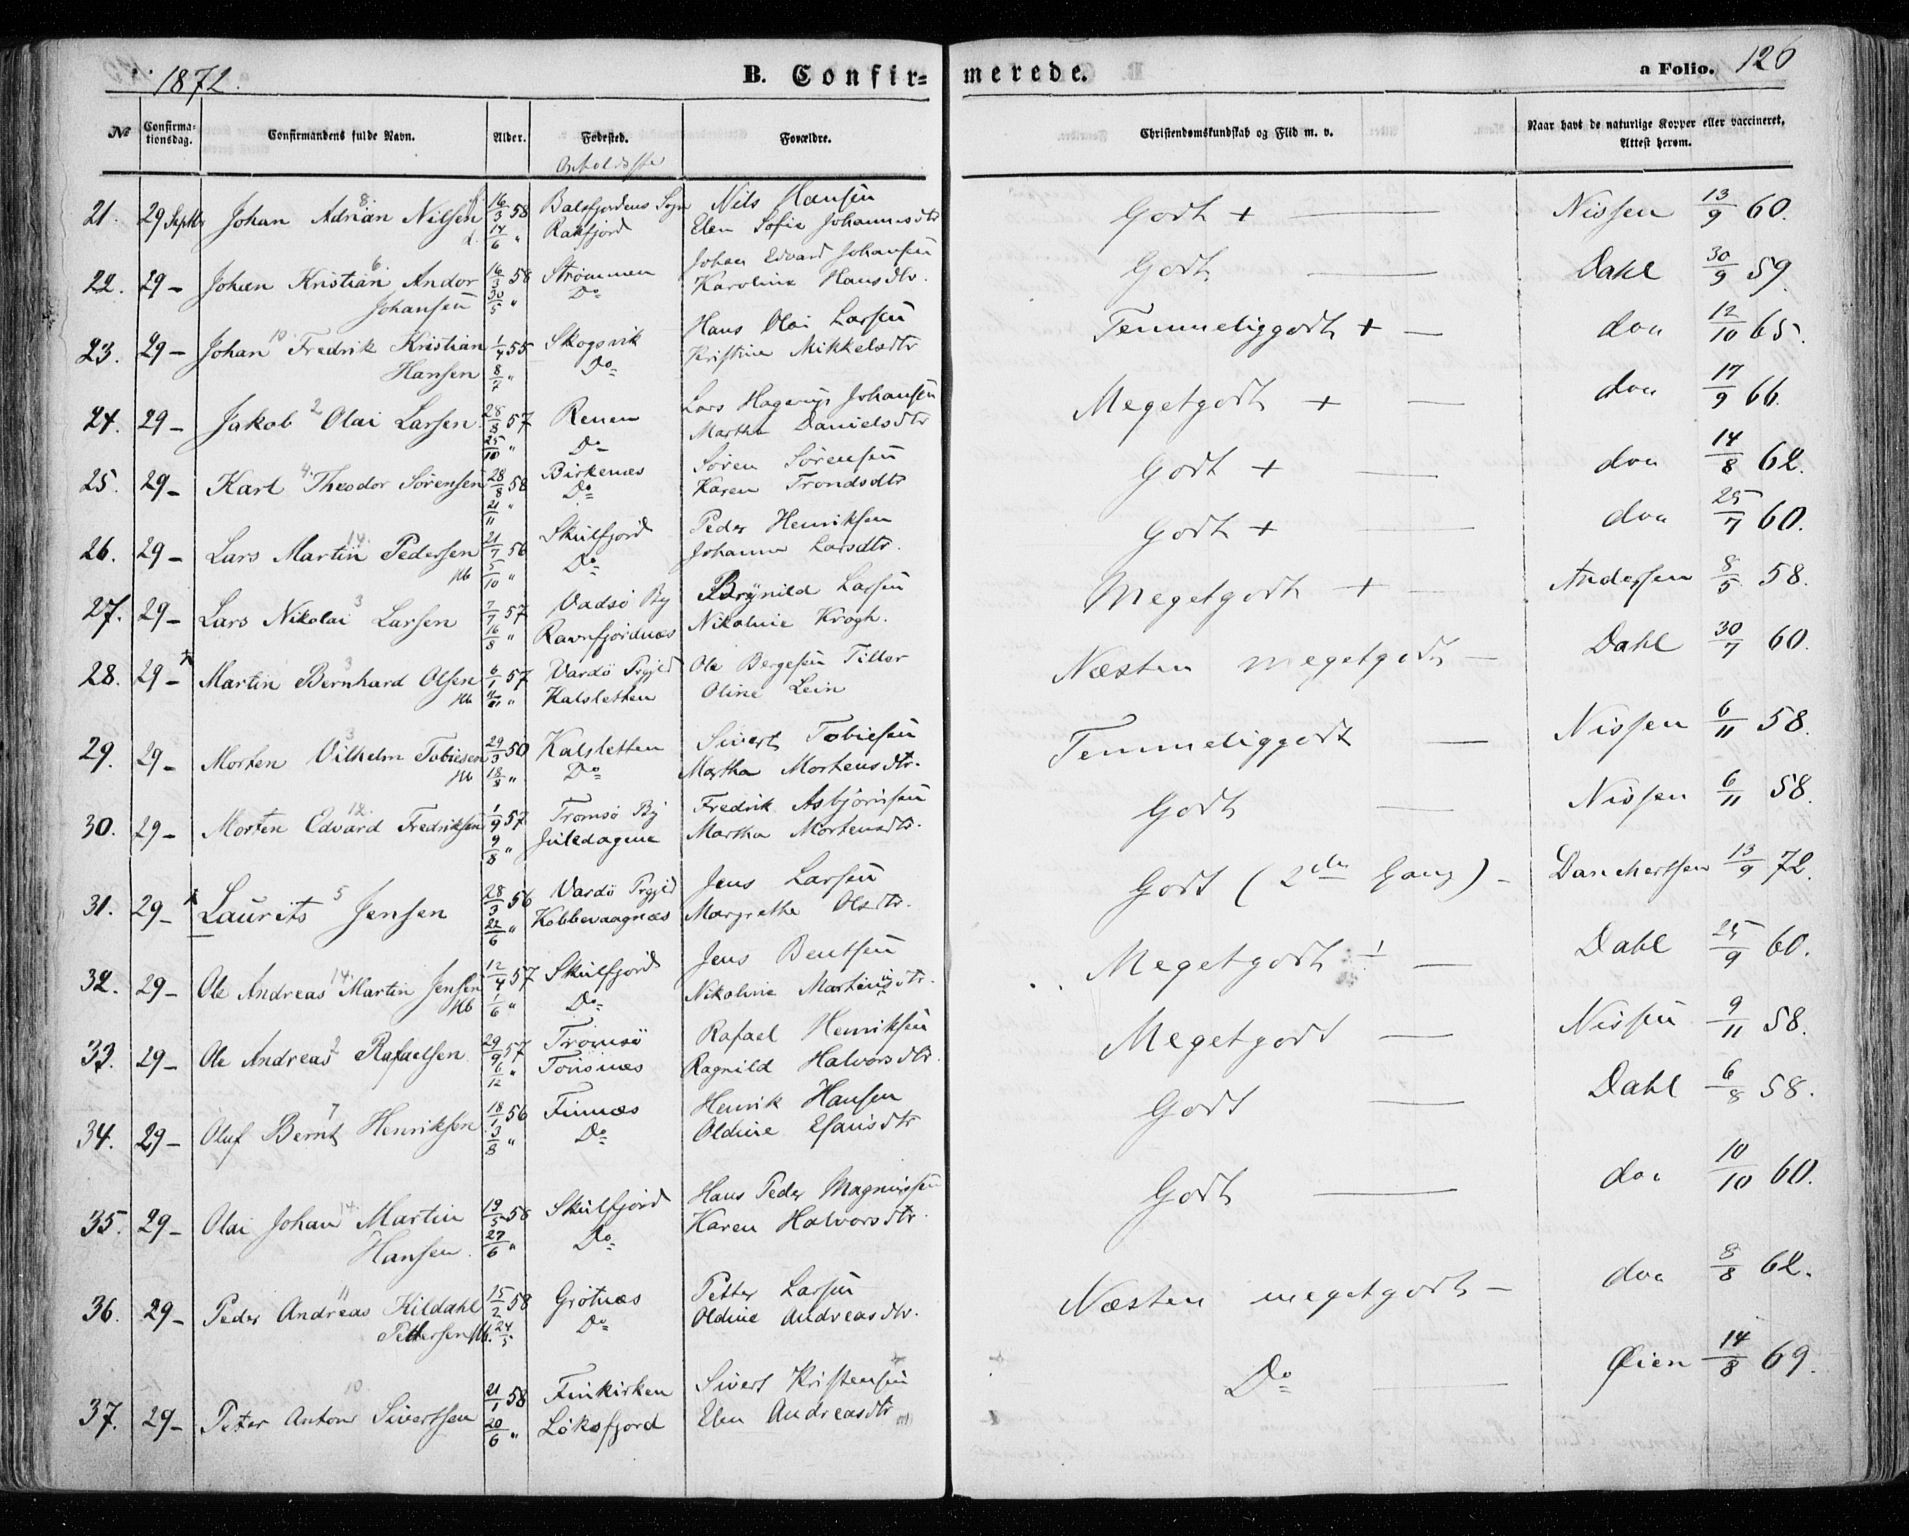 1872.
B. Confir= merede.
a Folio. 126
No
Confirma-
tionsdag.
Confirmandens fulde Navn.
Alder.
Fødested.
Forældre.
Christendomskundskab og Flid m. v.
Naar havt de naturlige Kopper eller vaccineret,
Attest herom.
21. 29 Septbr Johan Adrian Nilsen 8 16/3 58 Balsfjordens Sogn Nils Hansen Godt + — Nissen 13/9 60.
14/6 " Elen Sofie Johannesdtr
22. 29 – Johan Kristian Andor 6 16/3 58 Strømmen Johan Edvard Johansen Godt — Dahl 30/9 59.
Johansen 30/5 " Do Karoline Hansdtr.
23. 29 – Johan Fredrik Kristian 10 1/4 55 Skogsvik Hans Olai Larsen Temmeliggodt + — doa 12/10 65.
Hansen 8/7 " Do Kristine Mikkelsdtr
24. 29 – Jakob Olai Larsen 2 28/8 57 Renen Lars Hagerup Johansen Megetgodt + — doa 17/9 66.
25/10 " Do Martha Danielsdtr
25. 29 – Karl Theodor Sørensen 4 28/8 58 Birkenæs Søren Sørensen Godt + — doa 14/8 62.
21/11 " Do Karen Trondsdtr
26. 29 – Lars Martin Pedersen 14 21/7 56 Skulfjord Peder Henriksen Godt + — doa 25/7 60.
5/10 " Do Johanna Larsdtr.
27. 29 – Lars Nikolai Larsen 3 7/7 57 Vadsö By Brynild Larsen Megetgodt + — Andersen 8/5 58.
16/8 " Ravnfjordnæs Nikoline Krogh.
28. 29 – Martin Bernhard Olsen 3 6/1 57 Vardö Prgjld Ole Bergesen Tiller Næsten megetgodt — Dahl 30/7 60.
" Kalsletten Oline Lein
29. 29 – Morten Vilhelm Tobiesen 3 29/3 50 Kalsletten Sivert Tobiesen Temmeliggodt — Nissen 6/11 58.
18/8 " Do Martha Mortensdtr.
30. 29 – Morten Edvard Fredriksen 12 1/9 57 Tromsö By Fredrik Asbjørnsen Godt — Nissen 6/11 58.
9/8 " Juledagene Martha Mortensdtr.
31. 29 – Laurits Jensen 5 28/3 56 Vardö Prgjld Jens Larsen Godt (2den Gang) – Danchertsen 13/9 72.
22/6 " Kobbevaagnæs Margrethe Olsdtr.
32. 29 – Ole Andreas Martin Jensen 14 12/4 57 Skulfjord Jens Bentsen Megetgodt — Dahl 25/9 60.
1/6 " Do Nikoline Martinusdtr.
33. 29 – Ole Andreas Rafaelsen 2 29/9 57 Tromsö Rafael Henriksen Megetgodt — Nissen 9/11 58.
6/12 " Tönsnæs Ragnild Halvorsdtr.
34. 29 – Oluf Bernt Henriksen 7 18/1 56 Finnæs Henrik Hansen Godt — Dahl 6/8 58.
3/8 " Do Oldine Esaisdtr
35. 29 – Olai Johan Martin 14 19/5 58 Skulfjord Hans Peder Magnussen Godt — doa 10/10 60.
Hansen. 27/6 " Do Karen Halvorsdtr.
36. 29 – Peder Andreas Kildahl 11 15/2 58 Grötnæs Petter Larsen Næsten megetgodt – doa 8/8 62.
Pettersen 24/5 Do Oldine Andreasdtr.
37. 29 – Peter Anton Sivertsen 10 21/1 58 Finkirken Sivert Kristensen Do — Øien 14/8 69.
20/6 " Löksfjord Elen Andreasdtr